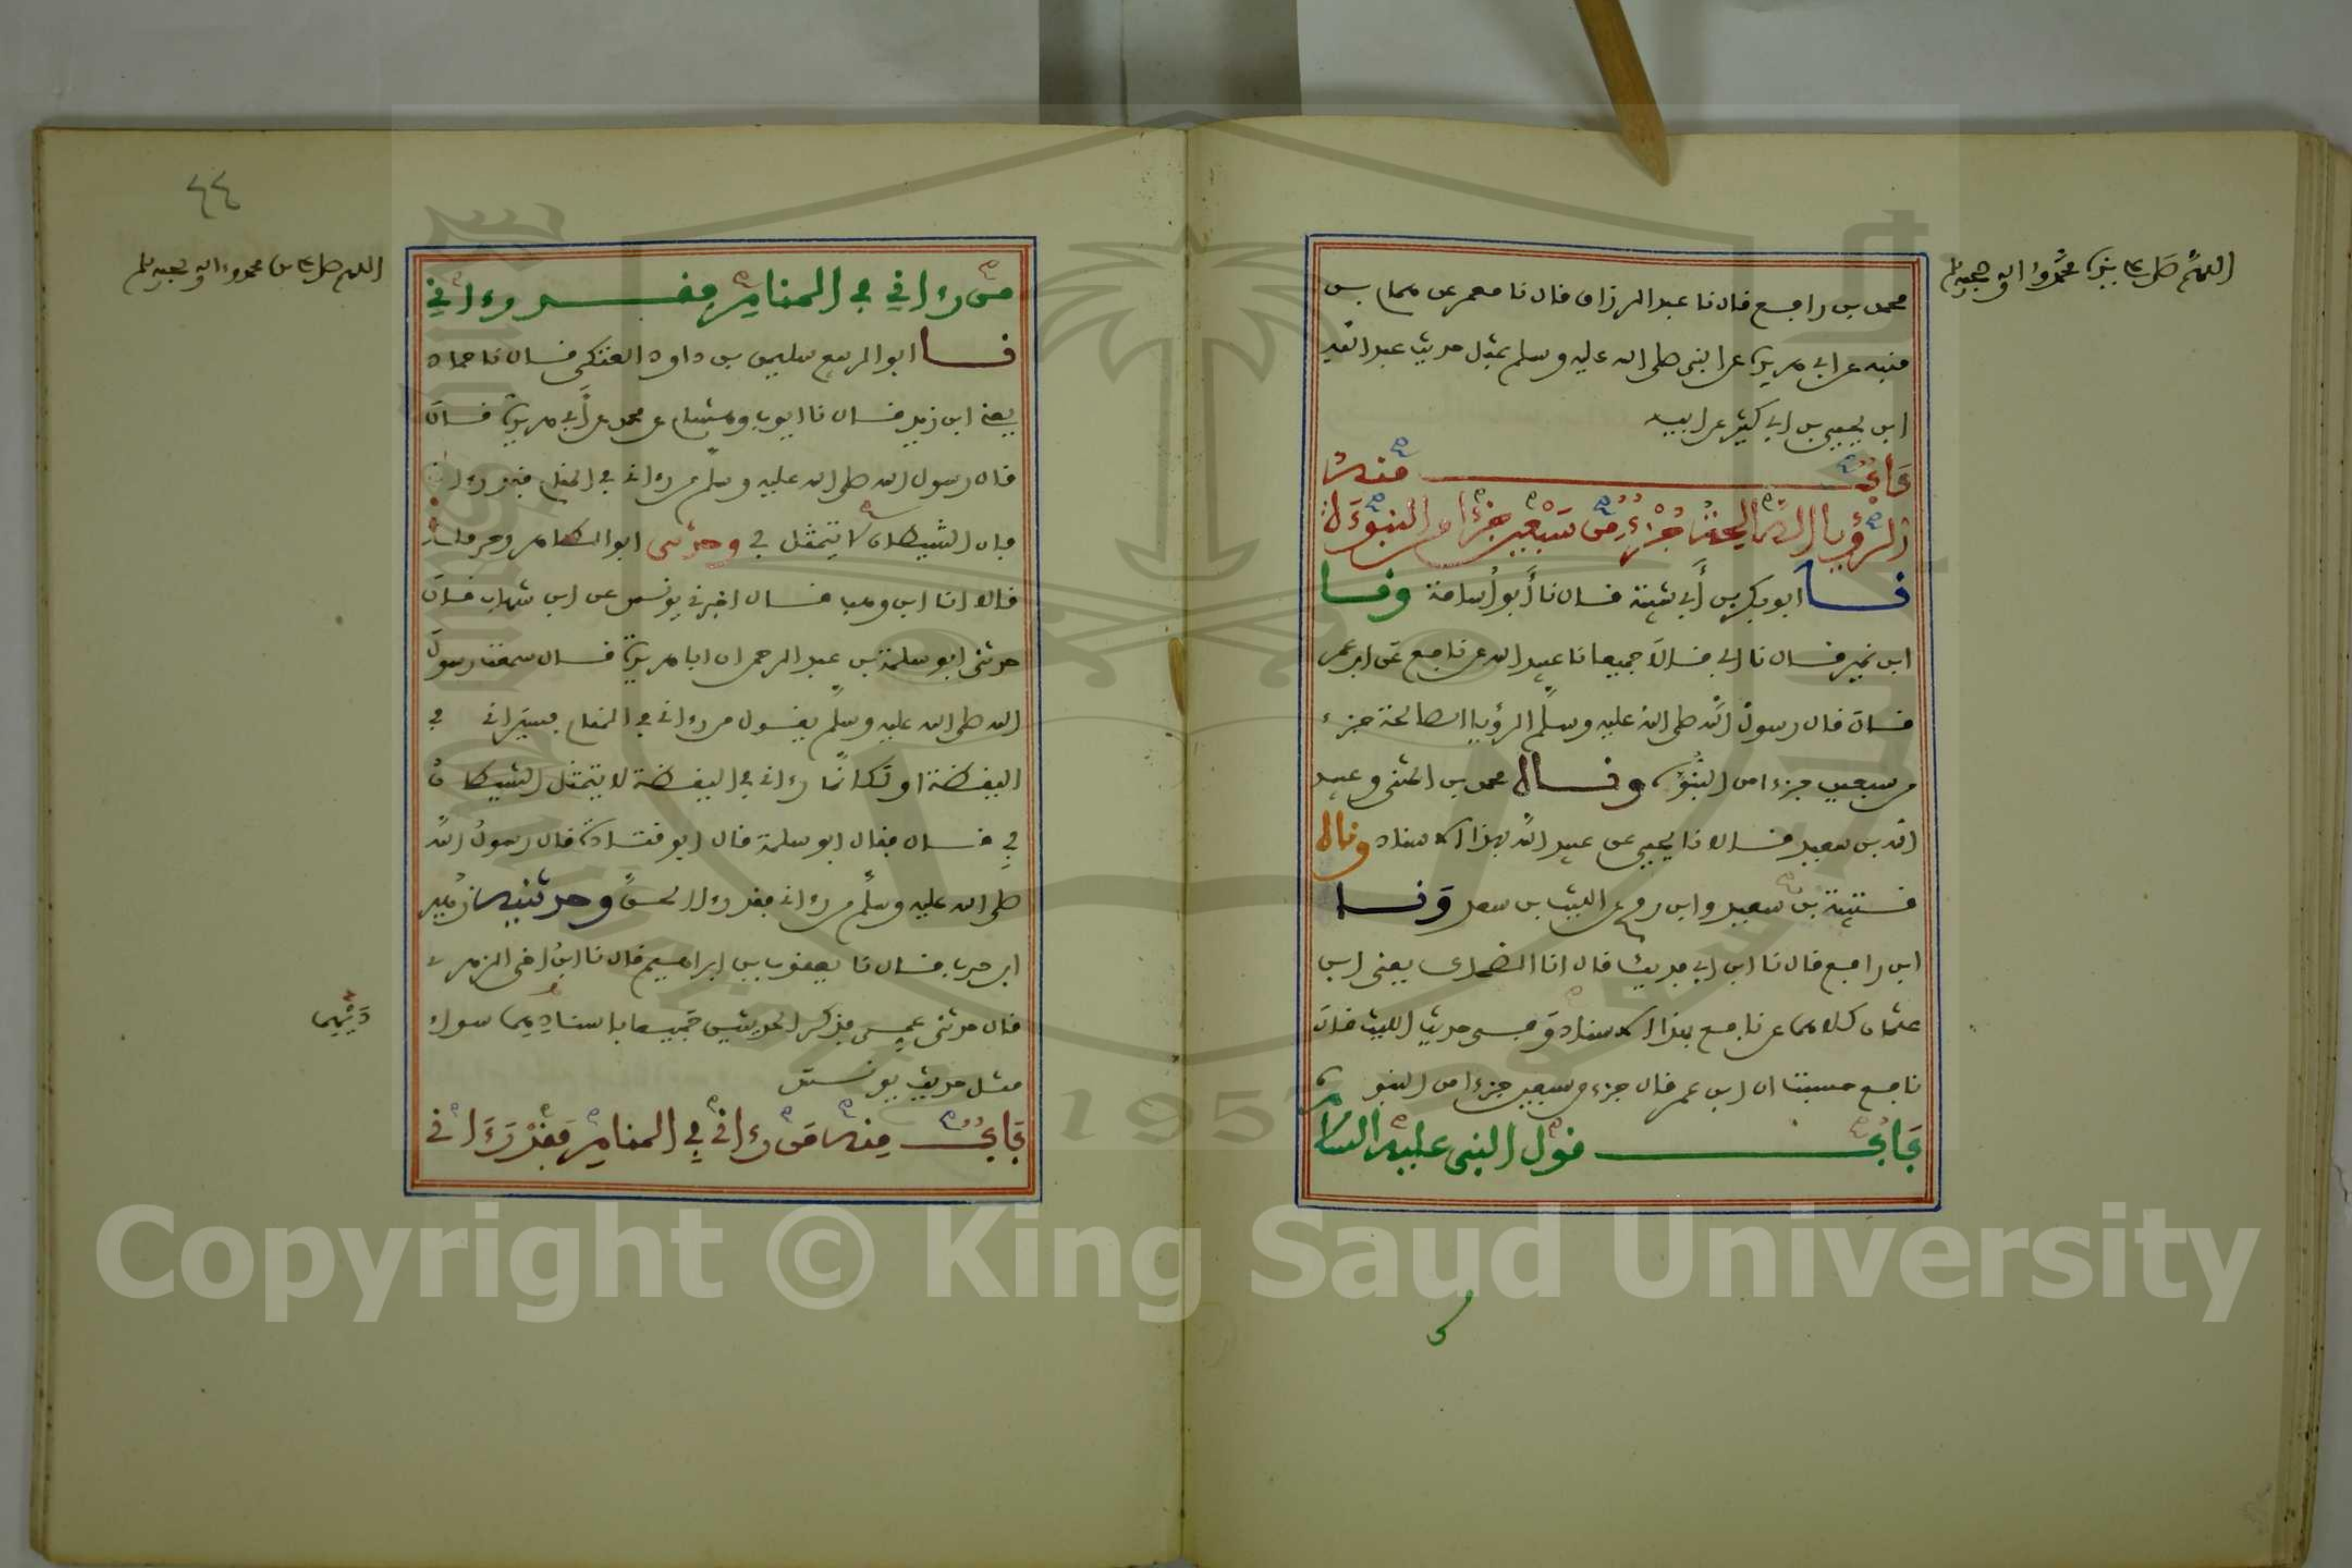 اللهم صل على نبينا محمد وءاله وصحبه وسلم
محمد بن رافع قال نا عبد الرزاق قال نا معمر عن همام بن
منبه عن ابي هريرة عن النبي صلى الله عليه وسلم بمثل حديث عبد الله
ابن يحيى بن ابي كثير عن ابيه
باب منه
الرؤيا الصالحة جزء من سبعين جزءا من النبوءة
نا ابو بكر بن أبي شيبة قال نا أبو أسامة ونا
ابن نمير قال نا ابي قالا جميعا نا عبيد الله عن نافع عن ابن عمر
قال قال رسول الله صلى الله عليه وسلم الرؤيا الصالحة جزء
من سبعين جزءا من النبوة ونا محمد بن المثنى وعبيد
الله بن سعيد قالا نا يحيى عن عبيد الله بهذا الاسناد ونا
قتيبة بن سعيد وابن رمح عن الليث بن سعد ونا
ابن رافع قال نا ابن ابي فديك قال انا الضحاك يعني ابن
عثمان كلاهما عن نافع بهذا الاسناد وفي حديث الليث قال
نافع حسبت ان ابن عمر قال جزء من سبعين جزءا من النبوة
باب قول النبي عليه السلام
٤٤
اللهم صل على محمد وءاله وصحبه وسلم
من رءاني في المنام فقد رءاني
نا ابو الربيع سليمن بن داود العتكي قال نا حماد
يعني ابن زيد قال نا ايوب وهشام عن محمد عن أبي هريرة قال
قال رسول الله صلى الله عليه وسلم من رءاني في المنام فقد رءاني
فان الشيطان لا يتمثل بي وحدثني ابو الطاهر وحرملة
قالا انا ابن وهب قال اخبرني يونس عن ابن شهاب قال
حدثني ابو سلمة بن عبد الرحمن ان ابا هريرة قال سمعت رسول
الله صلى الله عليه وسلم يقول من رءاني في المنام فسيراني في
اليقظة او لكانما رءاني في اليقظة لا يتمثل الشيطان
بي قال فقال ابو سلمة قال ابو قتادة قال رسول الله
صلى الله عليه وسلم من رءاني فقد رءا الحق وحدثنيه زهير
ابن حرب قال نا يعقوب بن ابراهيم قال نا ابن اخي الزهري
قال حدثني عمي فذكر الحديثين جميعا باسناديهما سواء
مثل حديث يونس
باب منه من رءاني في المنام فقد رءاني
Copyright © King Saud University
1957